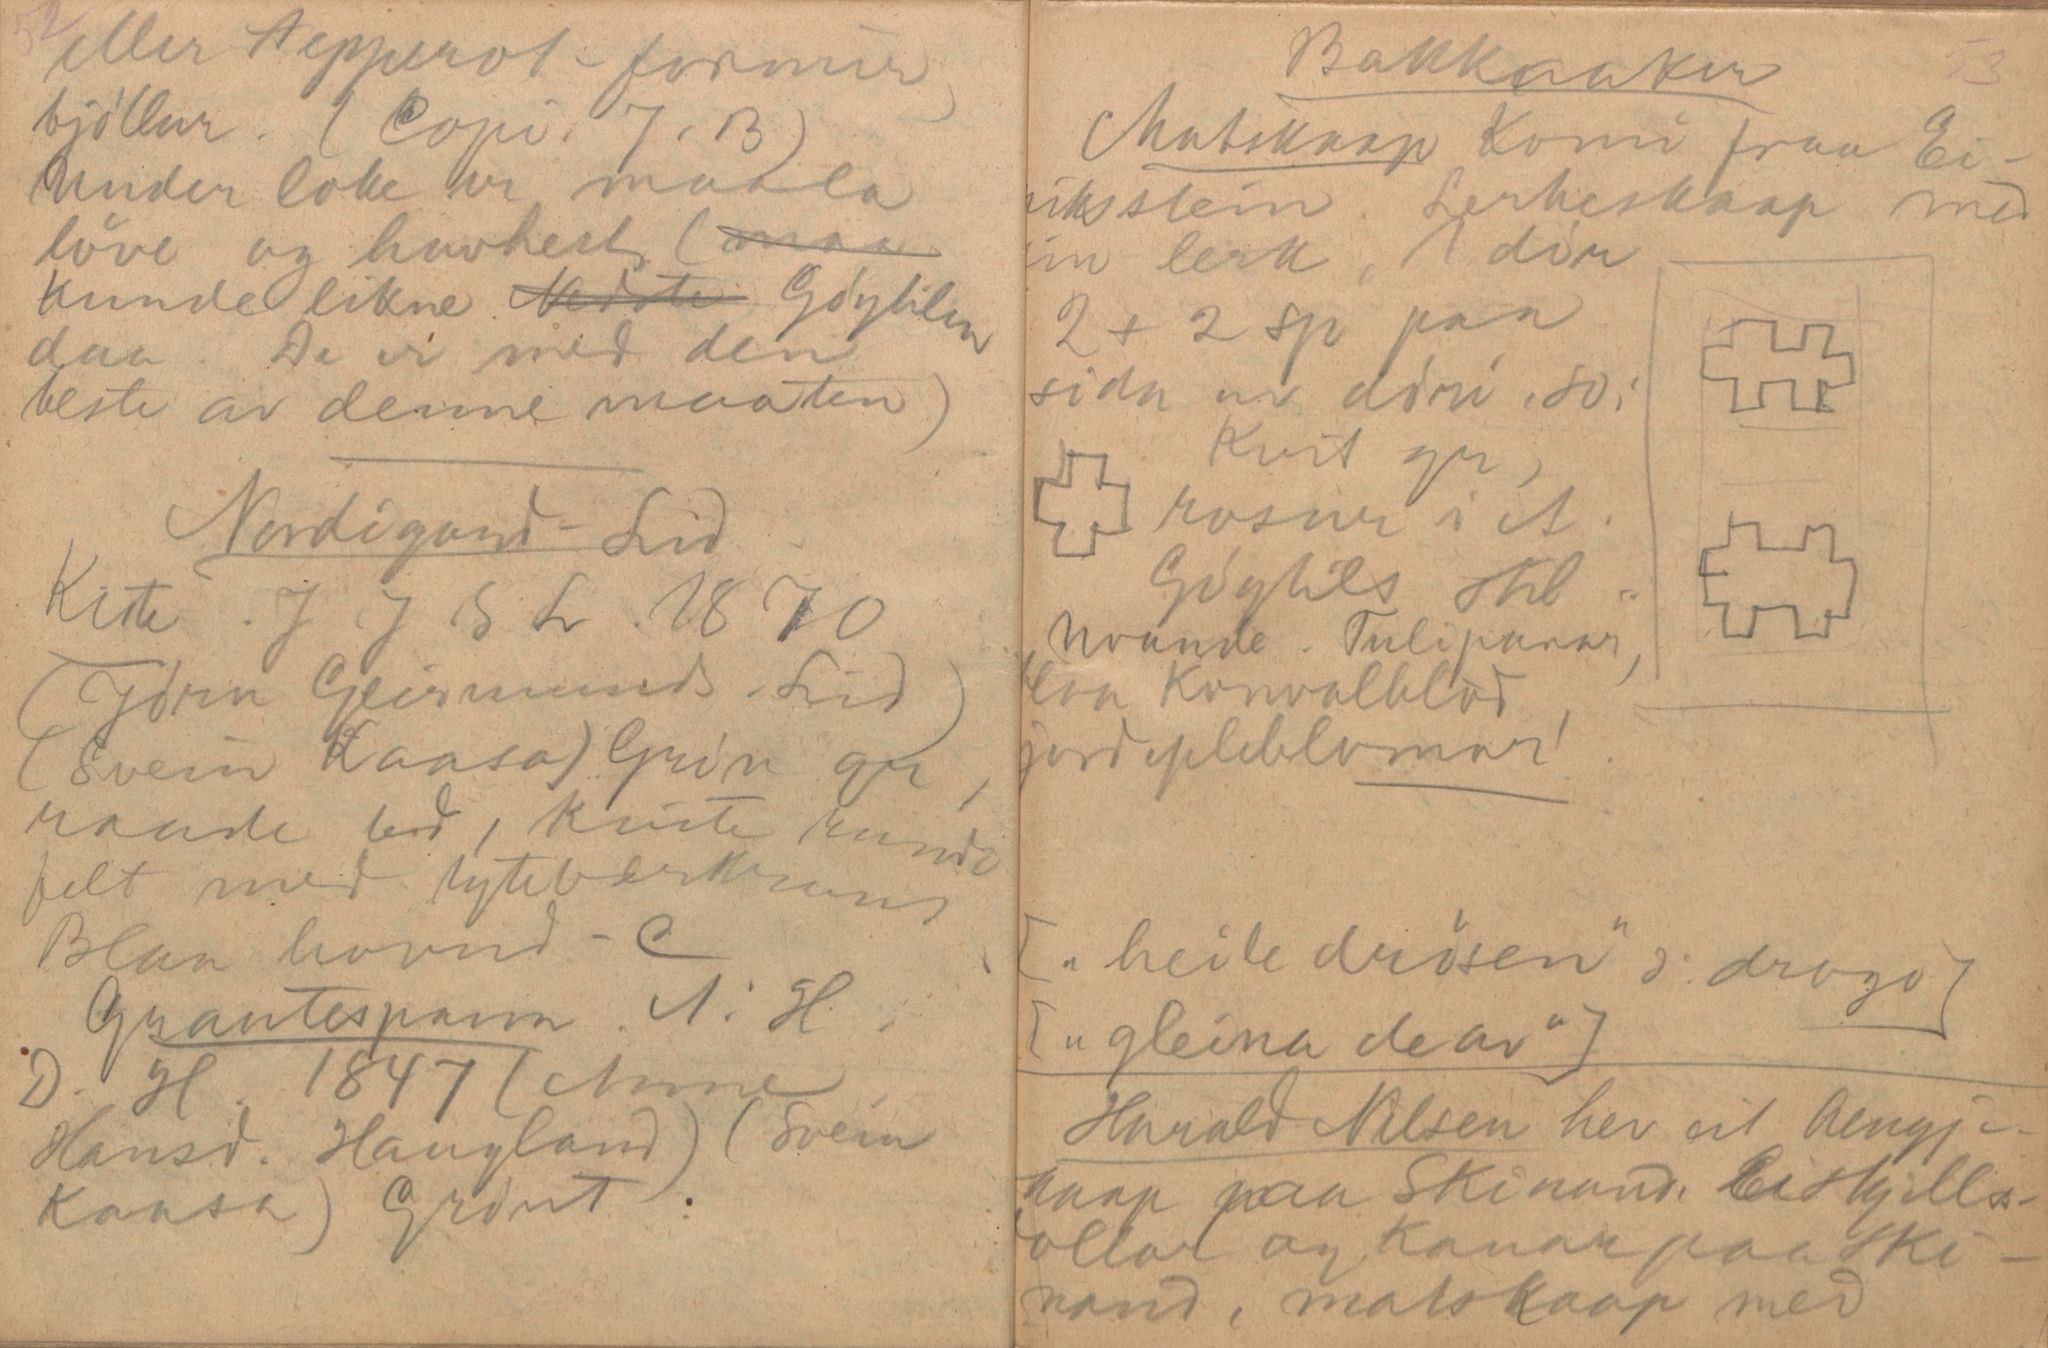 52
eller tepperot-former,
bjöllur. (Copi. J. B)
Under loke er maala
löve og havhest (maa
kunde likne Nedste Göytilen
daa. De er med den
beste av denne maaten)
Nordigard - Lid
Kiste. J J S L. 1870
(Jörn Geirmunds. Lid)
(Svein Kaasa) Grön gr,
raude bd, kvite runde
felt med tytebærkrans
Blaa hovud - C
Grautespann. A. H.
D. H. 1847 (Anne
Hansd. Haugland) (Svein
Kaasa) Grönt.
53
Bakkaaker
Matskaap Komi fraa Ei-
riksstein. Lerkeskaap med
ein lerk, 1 dör
2 + 2 sp paa
sida av döri, so:
Kvit gr,
rosur i et.
Göytils stil
Tulipanar,
blaa Konvalblod,
jordepleblomar!
[„heile drösen" ɔ: drogo]
[„gleina de av"]
Harald Nilsen hev eit hengje-
skaap paa Skinand. Eiskjills-
bollar og Kanar paa Ski-
nand, matskaap med